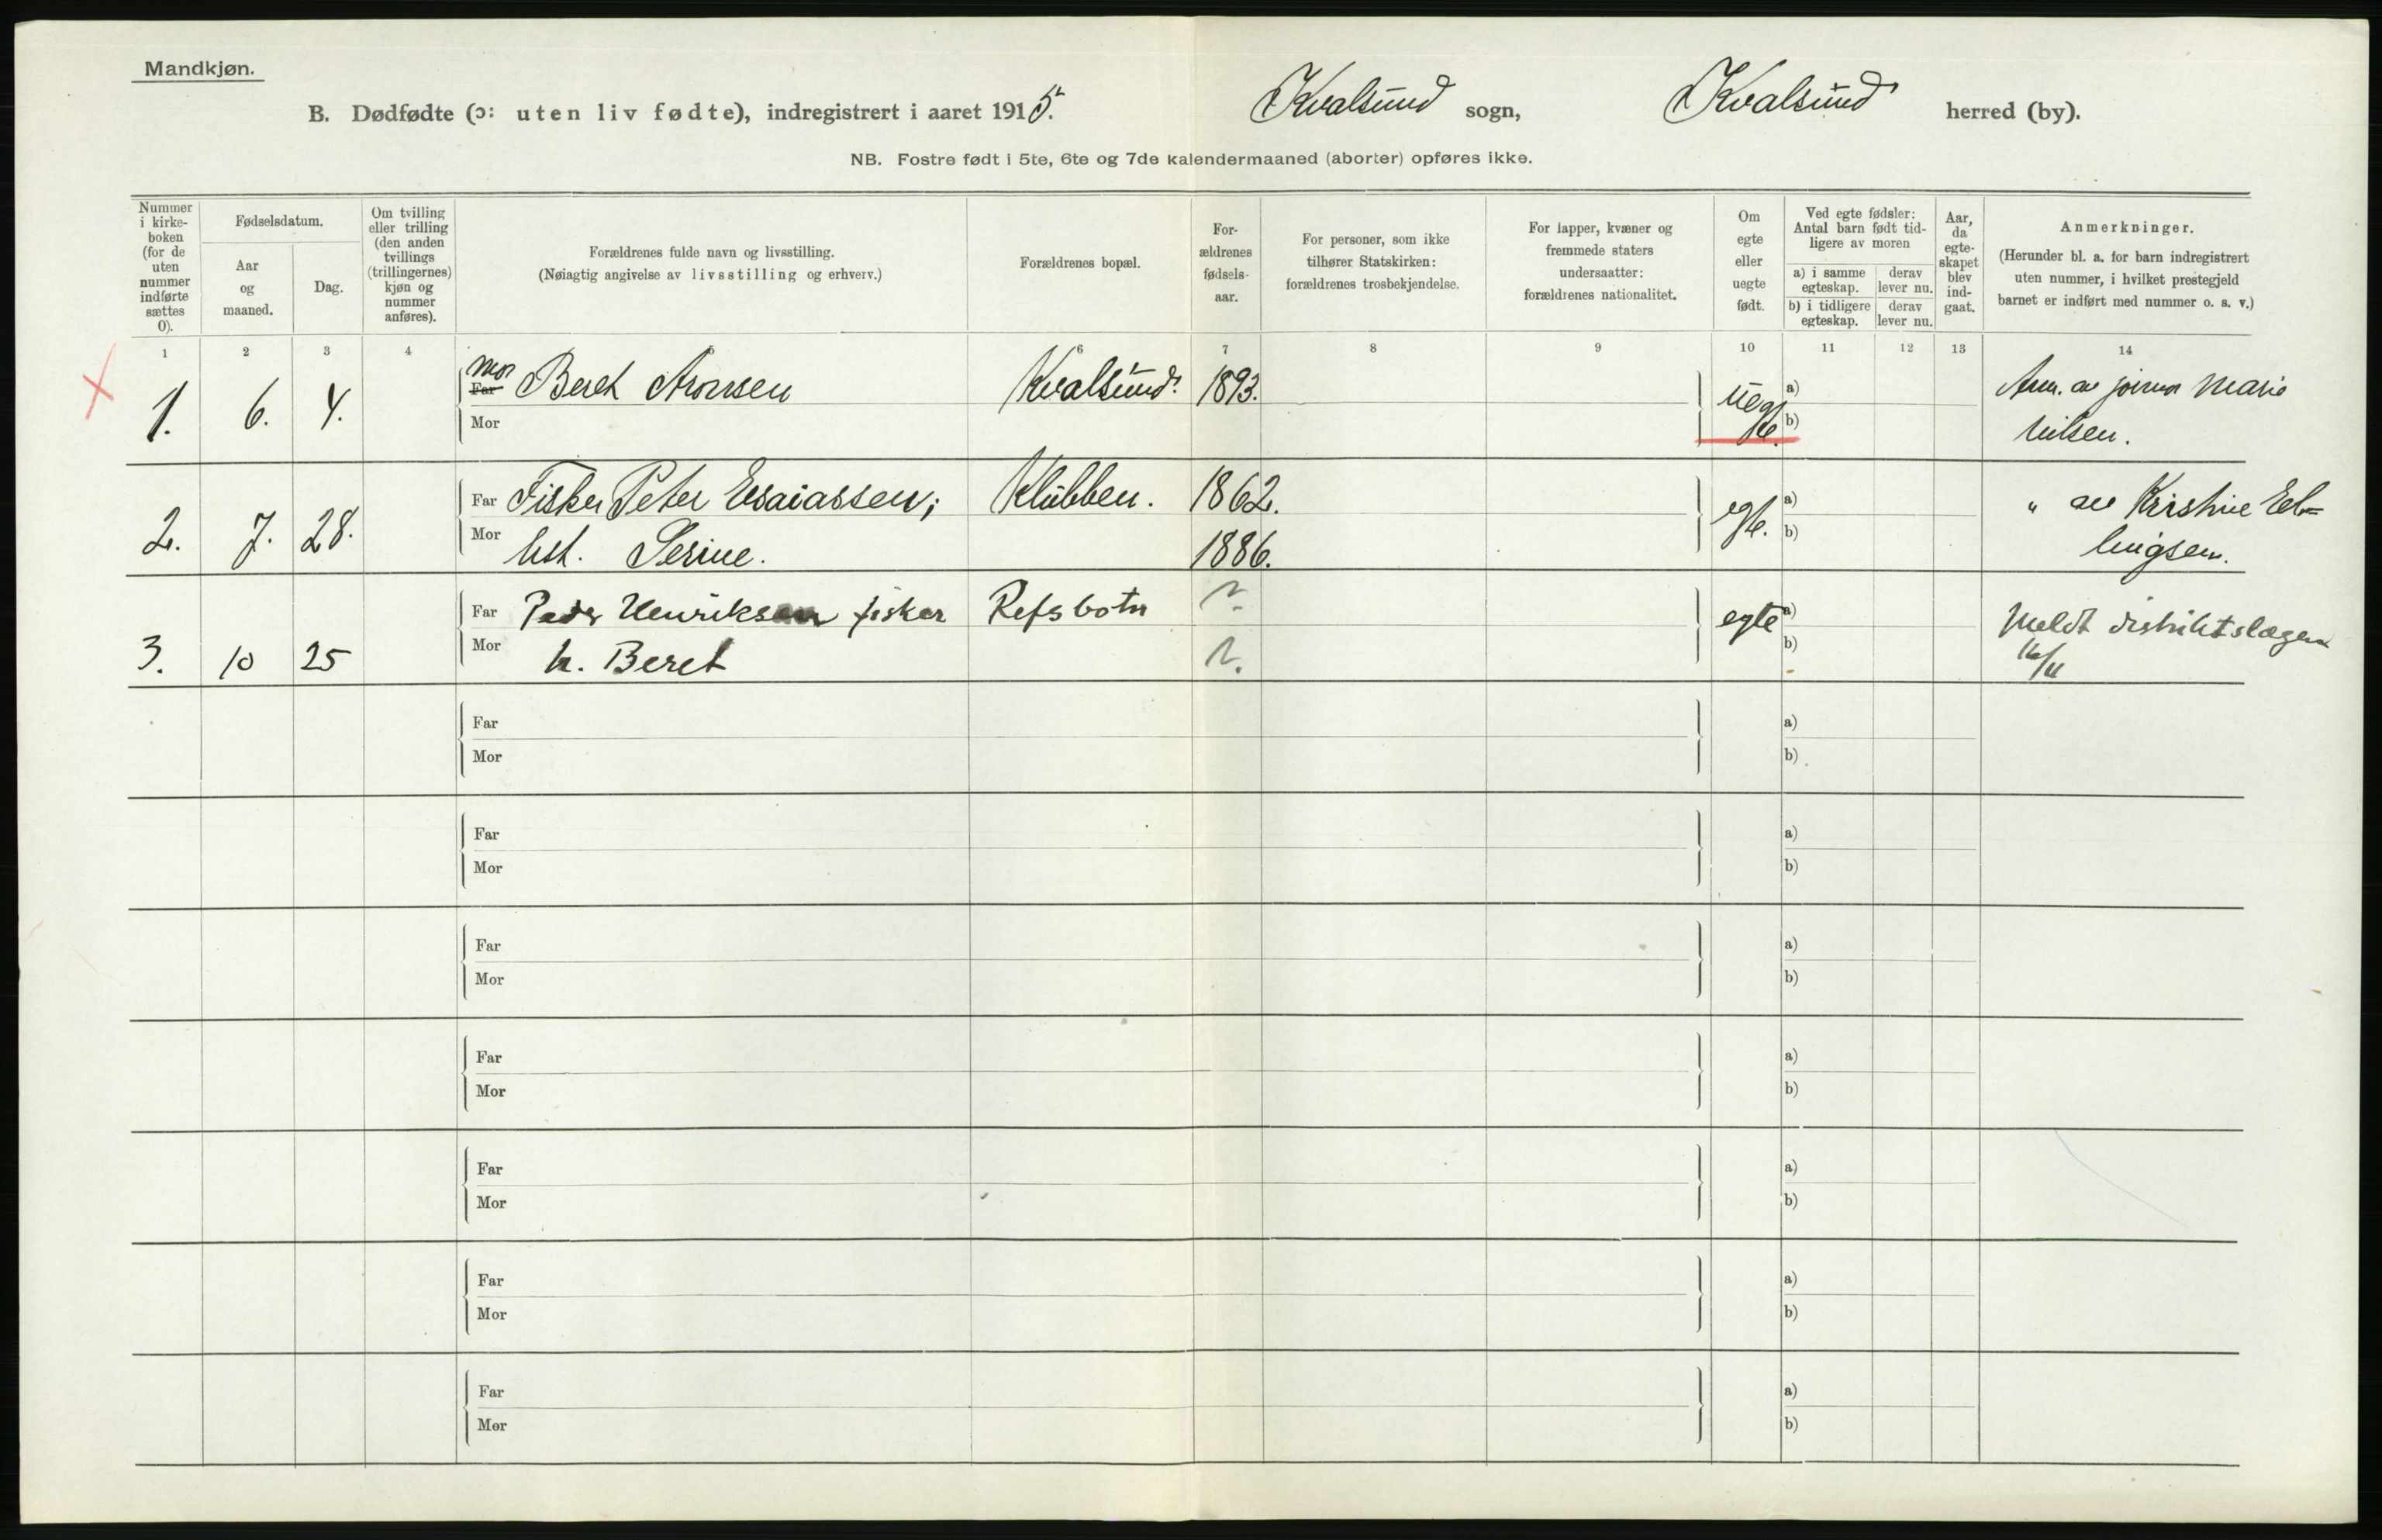 Mandkjøn.
B. Dødfødte (ɔ: uten liv fødte), indregistrert i aaret 1915. Kvalsund sogn, Kvalsund herred (by).
NB. Fostre født i 5te, 6te og 7de kalendermaaned (aborter) opføres ikke.
Nummer i kirke- boken (for de uten nummer indførte sættes 0).
Fødselsdatum.
Aar og maaned.
Dag.
Om tvilling eller trilling (den anden tvillings (trillingernes) kjøn og nummer anføres).
Forældrenes fulde navn og livsstilling.
(Nøiagtig angivelse av livsstilling og erhverv.)
Forældrenes bopæl.
For- ældrenes fødsels- aar.
For personer, som ikke tilhører Statskirken: forældrenes trosbekjendelse.
For lapper, kvæner og fremmede staters undersaatter: forældrenes nationalitet.
Om egte eller uegte født.
Ved egte fødsler: Antal barn født tid- ligere av moren
a) i samme egteskap.
derav lever nu.
b) i tidligere egteskap.
derav lever nu.
Aar, da egte- skapet blev ind- gaat.
Anmerkninger.
(Herunder bl. a. for barn indregistrert uten nummer, i hvilket prestegjeld barnet er indført med nummer o. s. v.)
1 2 3 4 5 6 7 8 9 10 11 12 13 14
1. 6. 4. Mor Far Beret Aronsen Kvalsund. 1893. uegte. a) Anm. av jormor Marie
Mor b) Nilsen.
2. 7. 28. Far Fisker Peter Esaiassen; Klubben. 1862. egte. a) " av Kristine
Mor hst. Serine. 1886. b)
3. 10 25 Far Peder Henriksen fisker Refsbotn ?. egte a) Meldt distriktslægen
Mor h. Beret ?. b)
Far a)
Mor b)
Far a)
Mor b)
Far a)
Mor b)
Far a)
Mor b)
Far a)
Mor b)
Far a)
Mor b)
Far a)
Mor b)